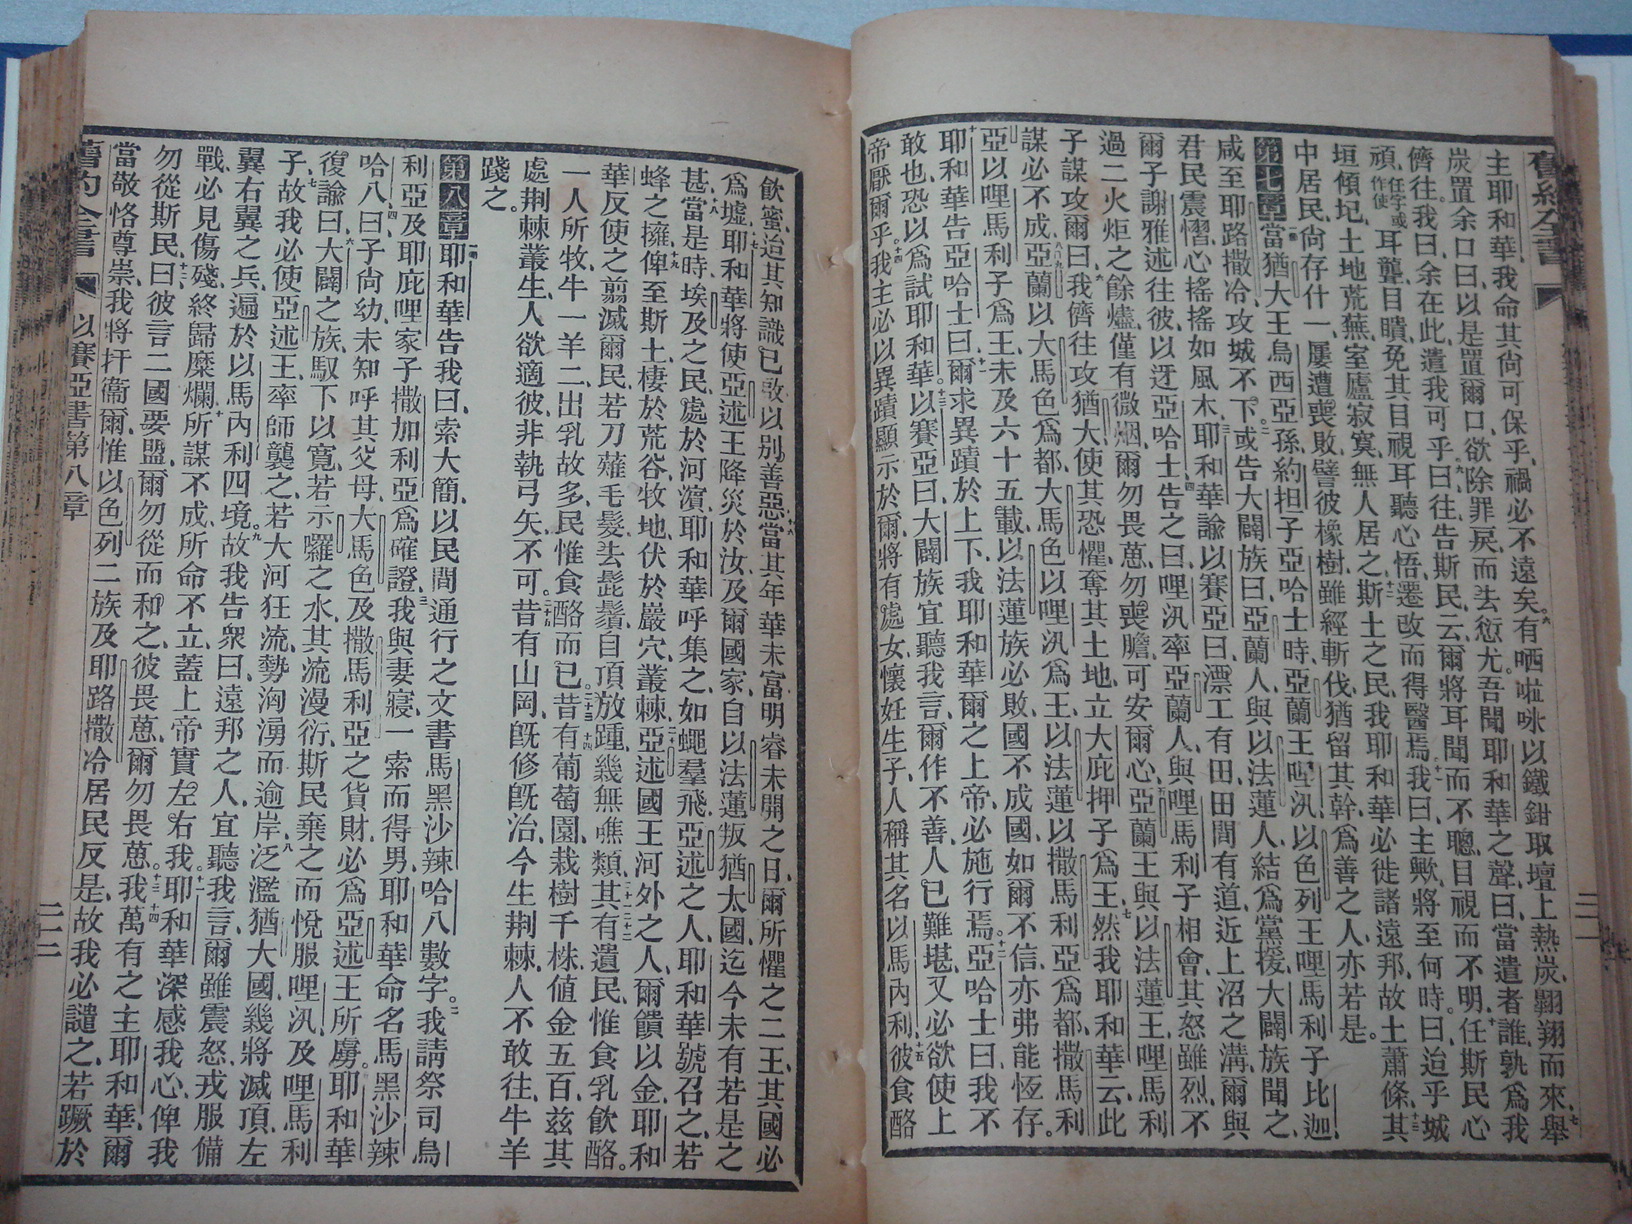 舊約全書
主耶和華、我命其尚可保乎、禍必不遠矣。六有哂啦咏以鐵鉗取壇上熱炭、翺翔而來、七舉
炭置余口曰、以是置爾口、欲除罪戾、而去愆尤。八吾聞耶和華之聲曰、當遣者誰、孰爲我
儕往。我曰、余在此、遣我可乎。九曰、往告斯民云、爾將耳聞而不聰、目視而不明。十任斯民心
頑、任字或作使耳聾、目瞶、免其目視耳聽心悟、遷改而得醫焉。十一我曰、主歟、將至何時。曰、迨乎城
垣傾圮、土地荒蕪、室廬寂寞、無人居之。十二斯土之民、我耶和華必徙諸遠邦、故土蕭條。十三其
中居民、尚存什一、屢遭喪敗、譬彼橡樹、雖經斬伐、猶留其幹、爲善之人、亦若是。
第七章 一當猶大王烏西亞孫、約担子、亞哈士時、亞蘭王哩汛、以色列王哩馬利子比迦、
咸至耶路撒冷、攻城不下。二或告大闢族曰、亞蘭人、與以法蓮人、結爲黨援、大闢族聞之、
君民震慴、心搖搖如風木。三耶和華諭以賽亞曰、漂工有田、田間有道、近上沼之溝、爾與
爾子謝雅述往彼、以迓亞哈士。四告之曰、哩汛率亞蘭人、與哩馬利子相會、其怒雖烈、不
過二火炬之餘燼、僅有微烟、爾勿畏葸、勿喪膽、可安爾心。五亞蘭王與以法蓮王、哩馬利
子謀攻爾曰、六我儕往攻猶大、使其恐懼、奪其土地、立大庇押子爲王。七然我耶和華云、此
謀必不成。八九亞蘭以大馬色爲都、大馬色以哩汛爲王、以法蓮以撒馬利亞爲都、撒馬利
亞以哩馬利子爲王、未及六十五載、以法蓮族必敗、國不成國、如爾不信、亦弗能恆存。
十耶和華告亞哈士曰、十一爾求異蹟於上下、我耶和華爾之上帝、必施行焉。十二亞哈士曰、我不
敢也、恐以爲試耶和華。十三以賽亞曰、大闢族宜聽我言、爾作不善、人已難堪、又必欲使上
帝厭爾乎。十四我主必以異蹟顯示於爾、將有處女、懷妊生子、人稱其名以馬內利。十五彼食酪
飲蜜、迨其知識已啟、以別善惡、十六當其年華未富、明睿未開之日、爾所懼之二王、其國必
爲墟。十七耶和華將使亞述王降災於汝、及爾國家、自以法蓮叛猶太國、迄今未有若是之
甚。十八當是時、埃及之民、處於河濱、耶和華呼集之、如蠅羣飛、亞述之人、耶和華號召之、若
蜂之擁。十九俾至斯土、棲於荒谷、牧地、伏於巖穴、叢棘。二十亞述國王、河外之人、爾饋以金、耶和
華反使之翦滅爾民、若刀薙毛髮、去髭鬚、自頂放踵、幾無噍類。二十一二十二其有遺民、惟食乳飲酪。
一人所牧、牛一羊二、出乳故多、民惟食酪而已。二十三二十四昔有葡萄園、栽樹千株、値金五百、茲其
處荆棘叢生、人欲適彼、非執弓矢不可。二十五昔有山岡、旣修旣治、今生荆棘、人不敢往、牛羊
踐之。
第八章 一耶和華告我曰、索大簡、以民間通行之文書馬黑沙辣哈八數字。二我請祭司烏
利亞及耶庇哩家子撒加利亞爲確證。三我與妻寢、一索而得男、耶和華命名馬黑沙辣
哈八曰、四子尚幼、未知呼其父母、大馬色及撒馬利亞之貨財、必爲亞述王所虜。五耶和華
復諭曰、六大闢之族、馭下以寬、若示囉之水、其流漫衍、斯民棄之、而悅服哩汛、及哩馬利
子、七故我必使亞述王、率師襲之、若大河狂流、勢洶湧而逾岸、八泛濫猶大國、幾將滅頂、左
翼右翼之兵、遍於以馬內利四境。九故我告衆曰、遠邦之人、宜聽我言、爾雖震怒、戎服備
戰、必見傷殘、終歸糜爛、十所謀不成、所命不立、蓋上帝實左右我。十一耶和華深感我心、俾我
勿從斯民曰、十二彼言二國要盟、爾勿從而和之、彼畏葸、爾勿畏葸。十三十四我萬有之主耶和華、爾
當敬恪尊崇、我將扞衞爾、惟以色列二族、及耶路撒冷居民反是、故我必譴之、若蹶於
舊約全書 以賽亞書第八章 二二